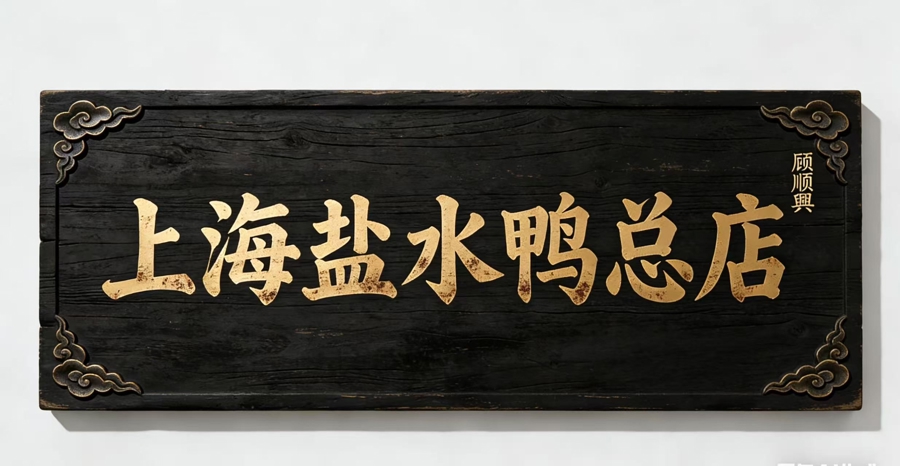 上海盐水鸭总店
顾顺興